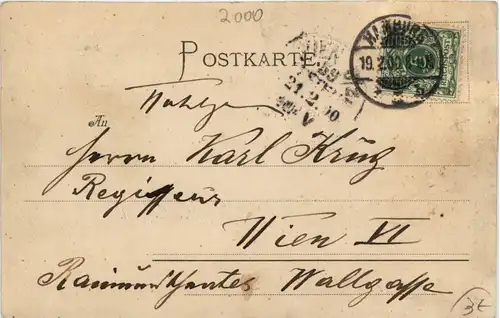 2000
POSTKARTE
HAMBURG
19.2.00
21.2.00
V
An
Herrn Karl Krug
Regisseur
Wien VI
Raimundtheater Wallgasse
3€